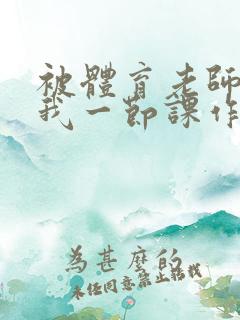 被體育老師
我一節課作
為甚麼的
未任同意禁止話我